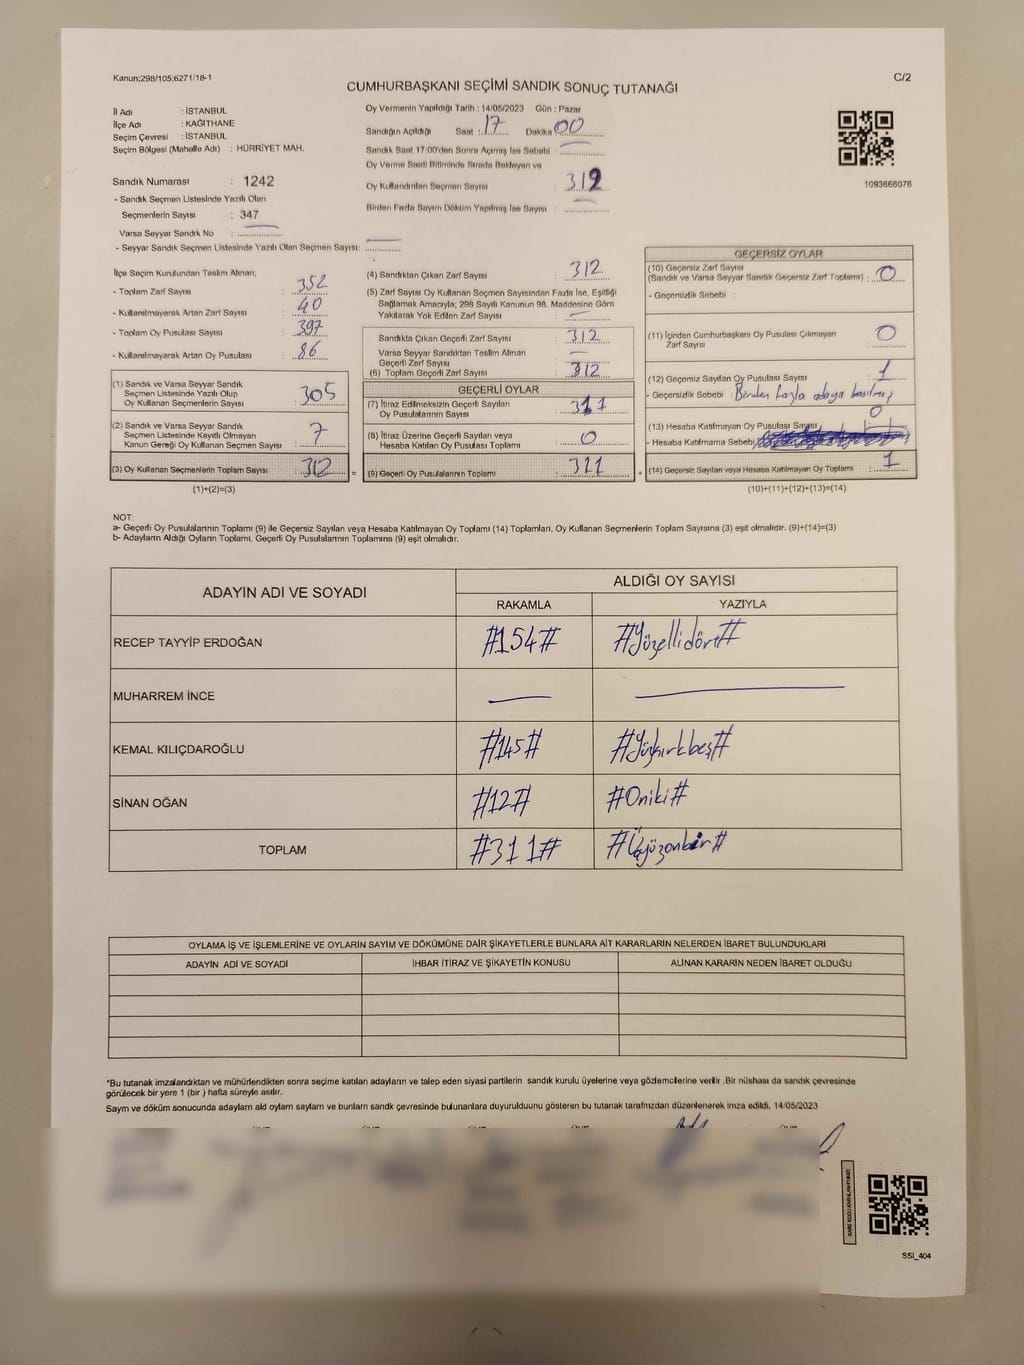 Kanun;298/105;6271/18-1
C/2
CUMHURBAŞKANI SEÇİMİ SANDIK SONUÇ TUTANAĞI
İl Adı : İSTANBUL
İlçe Adı : KAĞITHANE
Seçim Çevresi : İSTANBUL
Seçim Bölgesi (Mahalle Adı) : HÜRRİYET MAH.
Sandık Numarası : 1242
- Sandık Seçmen Listesinde Yazılı Olan
Seçmenlerin Sayısı : 347
Varsa Seyyar Sandık No :
- Seyyar Sandık Seçmen Listesinde Yazılı Olan Seçmen Sayısı:
Oy Vermenin Yapıldığı Tarih : 14/05/2023 Gün : Pazar
Sandığın Açıldığı Saat : 17 Dakika 00
Sandık Saat 17:00'den Sonra Açımış İse Sebebi :
Oy Verme Saati Bitiminde Sırada Bekleyen ve
Oy Kullandırılan Seçmen Sayısı : 312
Birden Fazla Sayım Döküm Yapılmış İse Sayısı :
1093666076
İlçe Seçim Kurulundan Teslim Alınan;
- Toplam Zarf Sayısı : 352
- Kullanılmayarak Artan Zarf Sayısı : 40
- Toplam Oy Pusulası Sayısı : 397
- Kullanılmayarak Artan Oy Pusulası : 86
(1) Sandık ve Varsa Seyyar Sandık
Seçmen Listesinde Yazılı Olup
Oy Kullanan Seçmenlerin Sayısı : 305
(2) Sandık ve Varsa Seyyar Sandık
Seçmen Listesinde Kayıtlı Olmayan
Kanun Gereği Oy Kullanan Seçmen Sayısı : 7
(3) Oy Kullanan Seçmenlerin Toplam Sayısı : 312 =
(1)+(2)=(3)
(4) Sandıktan Çıkan Zarf Sayısı : 312
(5) Zarf Sayısı Oy Kullanan Seçmen Sayısından Fazla İse, Eşitliği
Sağlamak Amacıyla; 298 Sayılı Kanunun 98. Maddesine Göre
Yakılarak Yok Edilen Zarf Sayısı :
Sandıkta Çıkan Geçerli Zarf Sayısı : 312
Varsa Seyyar Sandıktan Teslim Alınan
Geçerli Zarf Sayısı :
(6) Toplam Geçerli Zarf Sayısı : 312
GEÇERLİ OYLAR
(7) İtiraz Edilmeksizin Geçerli Sayılan
Oy Pusulalarının Sayısı : 311
(8) İtiraz Üzerine Geçerli Sayılan veya
Hesaba Katılan Oy Pusulası Toplamı : 0
(9) Geçerli Oy Pusulalarının Toplamı : 311 +
GEÇERSİZ OYLAR
(10) Geçersiz Zarf Sayısı
(Sandık ve Varsa Seyyar Sandık Geçersiz Zarf Toplamı) : 0
- Geçersizlik Sebebi :
(11) İçinden Cumhurbaşkanı Oy Pusulası Çıkmayan
Zarf Sayısı : 0
(12) Geçersiz Sayılan Oy Pusulası Sayısı : 1
- Geçersizlik Sebebi Birden fazla adaya basılmış
(13) Hesaba Katılmayan Oy Pusulası Sayısı : 0
- Hesaba Katılmama Sebebi
(14) Geçersiz Sayılan veya Hesaba Katılmayan Oy Toplamı : 1
(10)+(11)+(12)+(13)=(14)
NOT:
a- Geçerli Oy Pusulalarının Toplamı (9) ile Geçersiz Sayılan veya Hesaba Katılmayan Oy Toplamı (14) Toplamları, Oy Kullanan Seçmenlerin Toplam Sayısına (3) eşit olmalıdır. (9)+(14)=(3)
b- Adayların Aldığı Oyların Toplamı, Geçerli Oy Pusulalarının Toplamına (9) eşit olmalıdır.
ADAYIN ADI VE SOYADI ALDIĞI OY SAYISI
RAKAMLA YAZIYLA
RECEP TAYYİP ERDOĞAN #154# #Yüzellidört#
MUHARREM İNCE
KEMAL KILIÇDAROĞLU #145# #Yüzkırkbeş#
SİNAN OĞAN #12# #Oniki#
TOPLAM #311# #Üçyüzonbir#
OYLAMA İŞ VE İŞLEMLERİNE VE OYLARIN SAYIM VE DÖKÜMÜNE DAİR ŞİKAYETLERLE BUNLARA AİT KARARLARIN NELERDEN İBARET BULUNDUKLARI
ADAYIN ADI VE SOYADI İHBAR İTİRAZ VE ŞİKAYETİN KONUSU ALINAN KARARIN NEDEN İBARET OLDUĞU
*Bu tutanak imzalandıktan ve mühürlendikten sonra seçime katılan adayların ve talep eden siyasi partilerin sandık kurulu üyelerine veya gözlemcilerine verilir .Bir nüshası da sandık çevresinde
görülecek bir yere 1 (bir ) hafta süreyle asılır.
Sayım ve döküm sonucunda adayların aldı oyların sayların ve bunların sandk çevresinde bulunanlara duyurulduunu gösteren bu tutanak tarafmzdan düzenlenerek imza edildi. 14/05/2023
SSİ_404